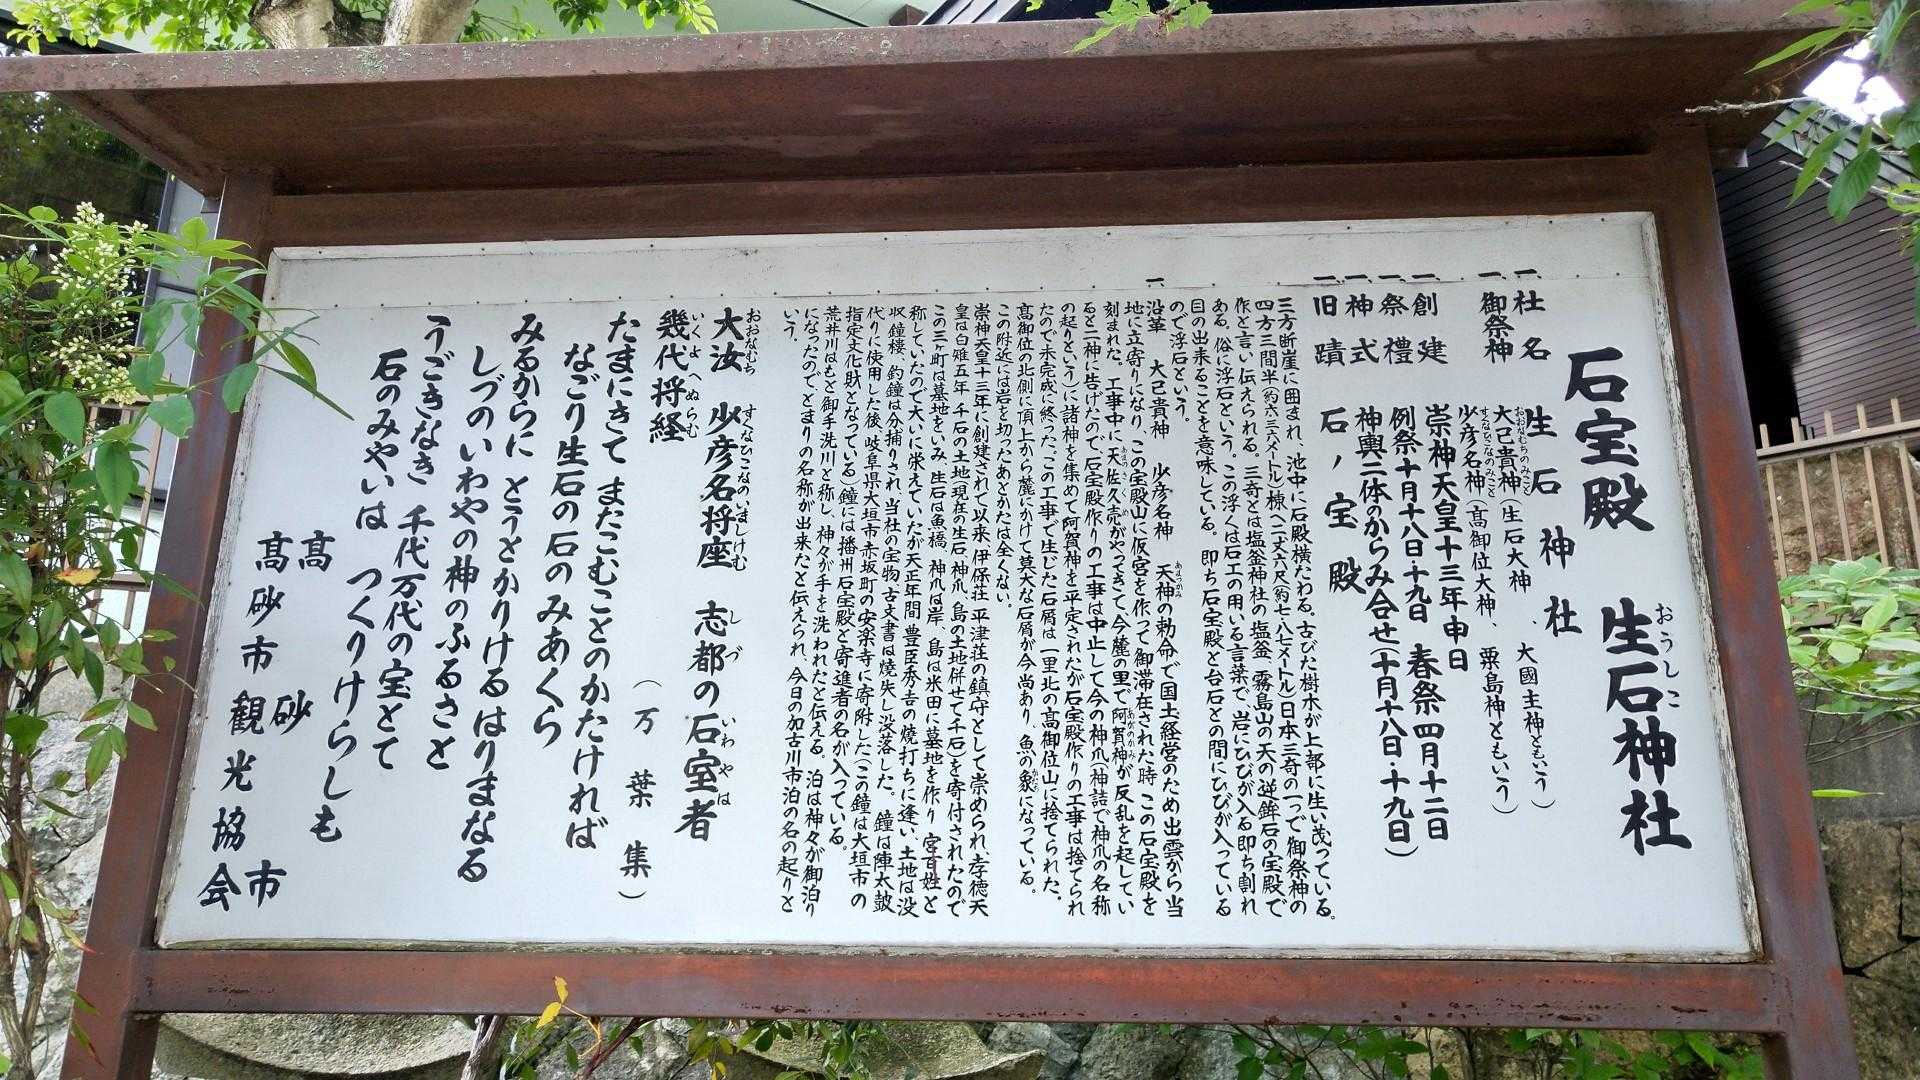 石宝殿 生石神社
おうしこ
一、社名 生石神社
一、御祭神 大己貴神(生石大神、大國主神ともいう)
おおなむちのみこと
少彦名神(高御位大神、粟島神ともいう)
すくなひこなのみこと
一、創建 崇神天皇十三年申日
一、祭禮 例祭十月十八日・十九日 春祭四月十二日
一、神式 神輿二体のからみ合せ(十月十八日・十九日)
一、旧蹟 石ノ宝殿
三方断崖に囲まれ、池中に石殿横たわる。古びた樹木が上部に生い茂っている。
四方三間半(約六・三六メートル)棟へ二丈六尺(約七・八七メートル)日本三奇の一つで御祭神の
作と言い伝えられる。三奇とは塩釜神社の塩釜、霧島山の天の逆鉾石の宝殿で
ある。俗に浮石という。この浮くは石工の用いる言葉で、岩にひびが入る即ち割れ
目の出来ることを意味している。即ち石宝殿と台石との間にひびが入っている
ので浮石という。
一、沿革 大己貴神 少彦名神 天神の勅命で国土経営のため出雲から当
あまつかみ
地に立寄りになり、この宝殿山に仮宮を作って御滞在された時 この石宝殿を
刻まれた。工事中に天佐久売がやってきて、今麓の里で阿賀神が反乱を起してい
あまのさくめ
あがのかみ
ると二神に告げたので、石宝殿作りの工事は中止して今の神爪(神詰で神爪の名称
の起りという)に諸神を集めて阿賀神を平定されたが石宝殿作りの工事は捨てられ
たので未完成に終った。この工事で生じた石屑は一里北の高御位山に捨てられた。
高御位の北側に頂上から麓にかけて莫大な石屑が今尚あり、魚の象になっている。
この附近には岩を切ったあとかたは全くない。
崇神天皇十三年に創建されて以来、伊保荘、平津荘の鎮守として崇められ、孝徳天
皇は白雉五年 千石の土地(現在の生石、神爪、島の土地併せて千石)を寄付されたので
この三ヶ町は墓地をいみ、生石は魚橋、神爪は岸、島は米田に墓地を作り 宮百姓と
称していたので大いに栄えていたが天正年間 豊臣秀吉の焼打ちに逢い、土地は没
収、鐘楼、釣鐘は分捕りされ、当社の宝物、古文書は焼失し没落した。 鐘は陣太鼓
代りに使用した後、岐阜県大垣市赤坂町の安楽寺に寄附した(この鐘は大垣市の
指定文化財となっている)鐘には播州石宝殿と寄進者の名が入っている。
荒井川はもと御手洗川と称し、神々が手を洗われたと伝える。泊は神々が御泊り
になったので、とまりの名称が出来たと伝えられ、今日の加古川市泊の名の起りと
いう。
大汝 少彦名将座 志都の石室者
おおなむち すくなひこなのいましけむ しづ いわやは
幾代将経
いくよへぬらむ
(万葉集)
たまにきて またこむことのかたければ
なごり生石の石のみあくら
みるからに とうとかりける はりまなる
しづのいわやの神のふるさと
うごきなき 千代万代の宝とて
石のみやいは つくりけらしも
高砂市
高砂市観光協会